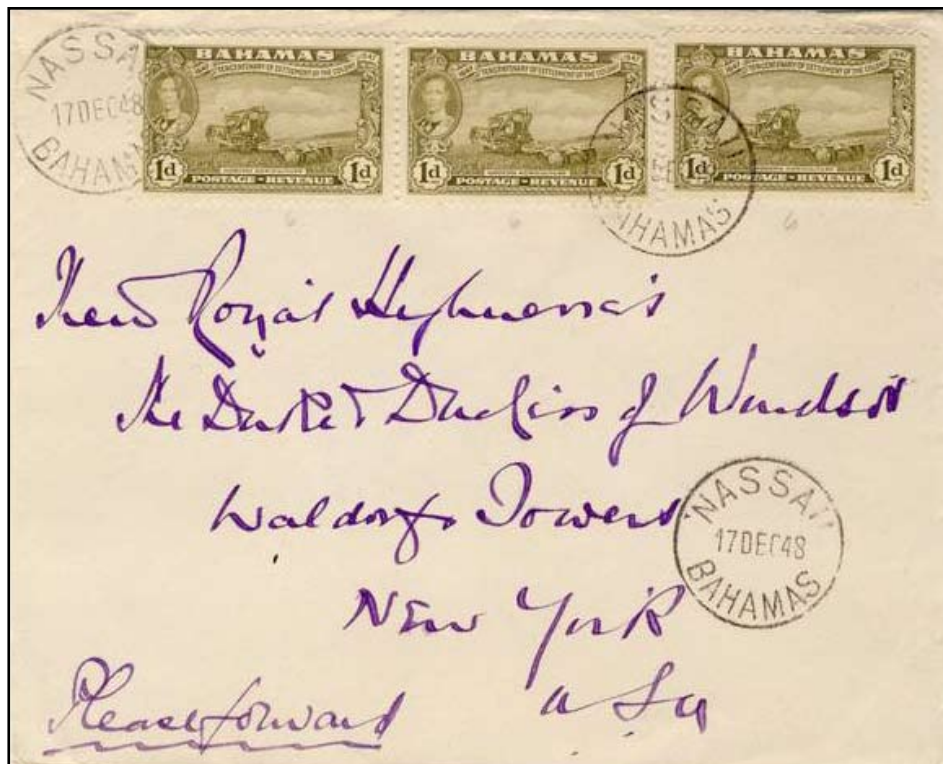 NASSAU
17 DEC 48
BAHAMAS
BAHAMAS
TERCENTENARY OF SETTLEMENT OF THE COLONY
1d POSTAGE - REVENUE 1d
BAHAMAS
TERCENTENARY OF SETTLEMENT OF THE COLONY
1d POSTAGE - REVENUE 1d
BAHAMAS
TERCENTENARY OF SETTLEMENT OF THE COLONY
1d POSTAGE - REVENUE 1d
NASSAU
BAHAMAS
Their Royal Highness's
The Duke & Duchess of Windsor
Waldorf Towers
New York
USA
Please forward
NASSAU
17 DEC 48
BAHAMAS